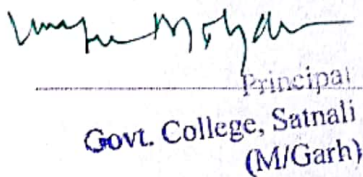 Principal
Govt. College, Satnali
(M/Garh)